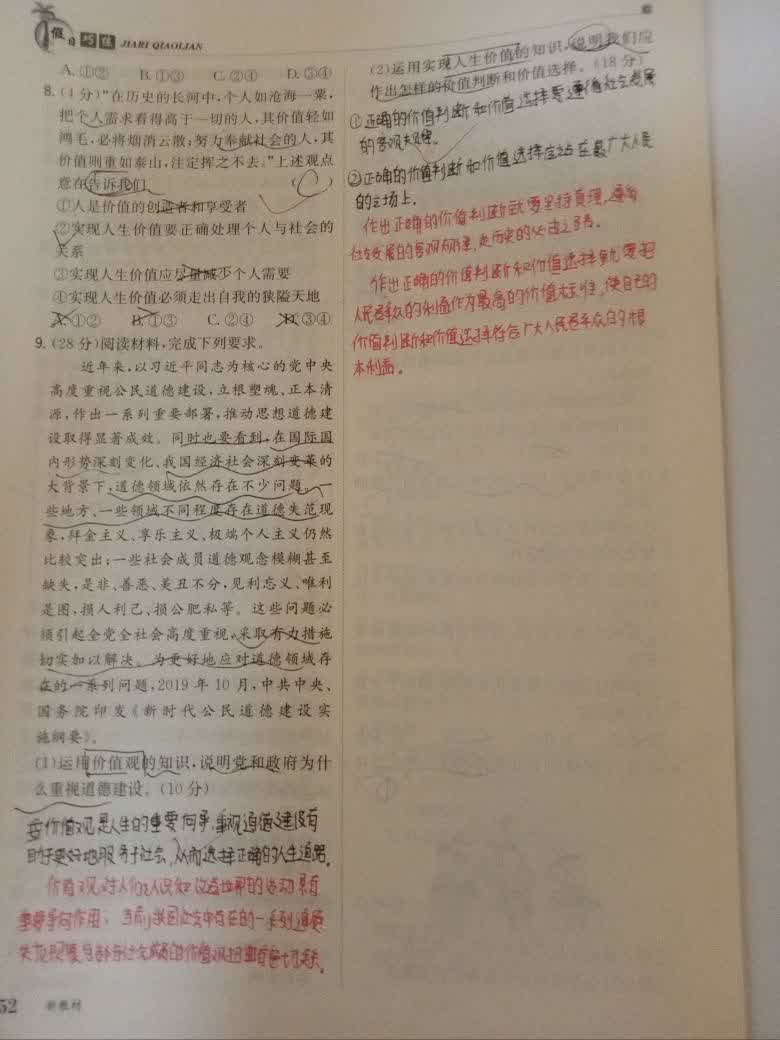 假日巧练 JIARI QIAOLIAN
A.①② B.①③ C.②④ D.③④
8.(4分)“在历史的长河中,个人如沧海一粟,
把个人需求看得高于一切的人,其价值轻如
鸿毛,必将烟消云散;努力奉献社会的人,其
价值则重如泰山,注定挥之不去。”上述观点
意在告诉我们 ( C )
①人是价值的创造者和享受者
②实现人生价值要正确处理个人与社会的
关系
③实现人生价值应尽量减少个人需要
④实现人生价值必须走出自我的狭隘天地
A.①② B.①③ C.②④ D.③④
9.(28分)阅读材料,完成下列要求。
近年来,以习近平同志为核心的党中央
高度重视公民道德建设,立根塑魂、正本清
源,作出一系列重要部署,推动思想道德建
设取得显著成效。同时也要看到,在国际国
内形势深刻变化、我国经济社会深刻变革的
大背景下,道德领域依然存在不少问题。一
些地方、一些领域不同程度存在道德失范现
象,拜金主义、享乐主义、极端个人主义仍然
比较突出;一些社会成员道德观念模糊甚至
缺失,是非、善恶、美丑不分,见利忘义、唯利
是图,损人利己、损公肥私等。这些问题必
须引起全党全社会高度重视,采取有力措施
切实加以解决。为更好地应对道德领域存
在的一系列问题,2019年10月,中共中央、
国务院印发《新时代公民道德建设实
施纲要》。
(1)运用价值观的知识,说明党和政府为什
么重视道德建设。(10分)
价值观是人生的重要向导,重视道德建设有
助于更好地服务于社会,从而选择正确的人生道路。
价值观对人们认识和改造世界的活动具有
重要导向作用,当前我国社会中存在的一系列道德
失范现象与部分社会成员的价值观扭曲有密切关系。
52 新教材
(2)运用实现人生价值的知识,说明我们应
作出怎样的价值判断和价值选择。(18分)
①正确的价值判断和价值选择要遵循社会发展
的客观规律。
②正确的价值判断和价值选择应站在最广大人民
的立场上。
作出正确的价值判断就要坚持真理,遵循
社会发展的客观规律,走历史的必由之路。
作出正确的价值判断和价值选择就要把
人民群众的利益作为最高的价值标准,使自己的
价值判断和价值选择符合广大人民群众的根
本利益。